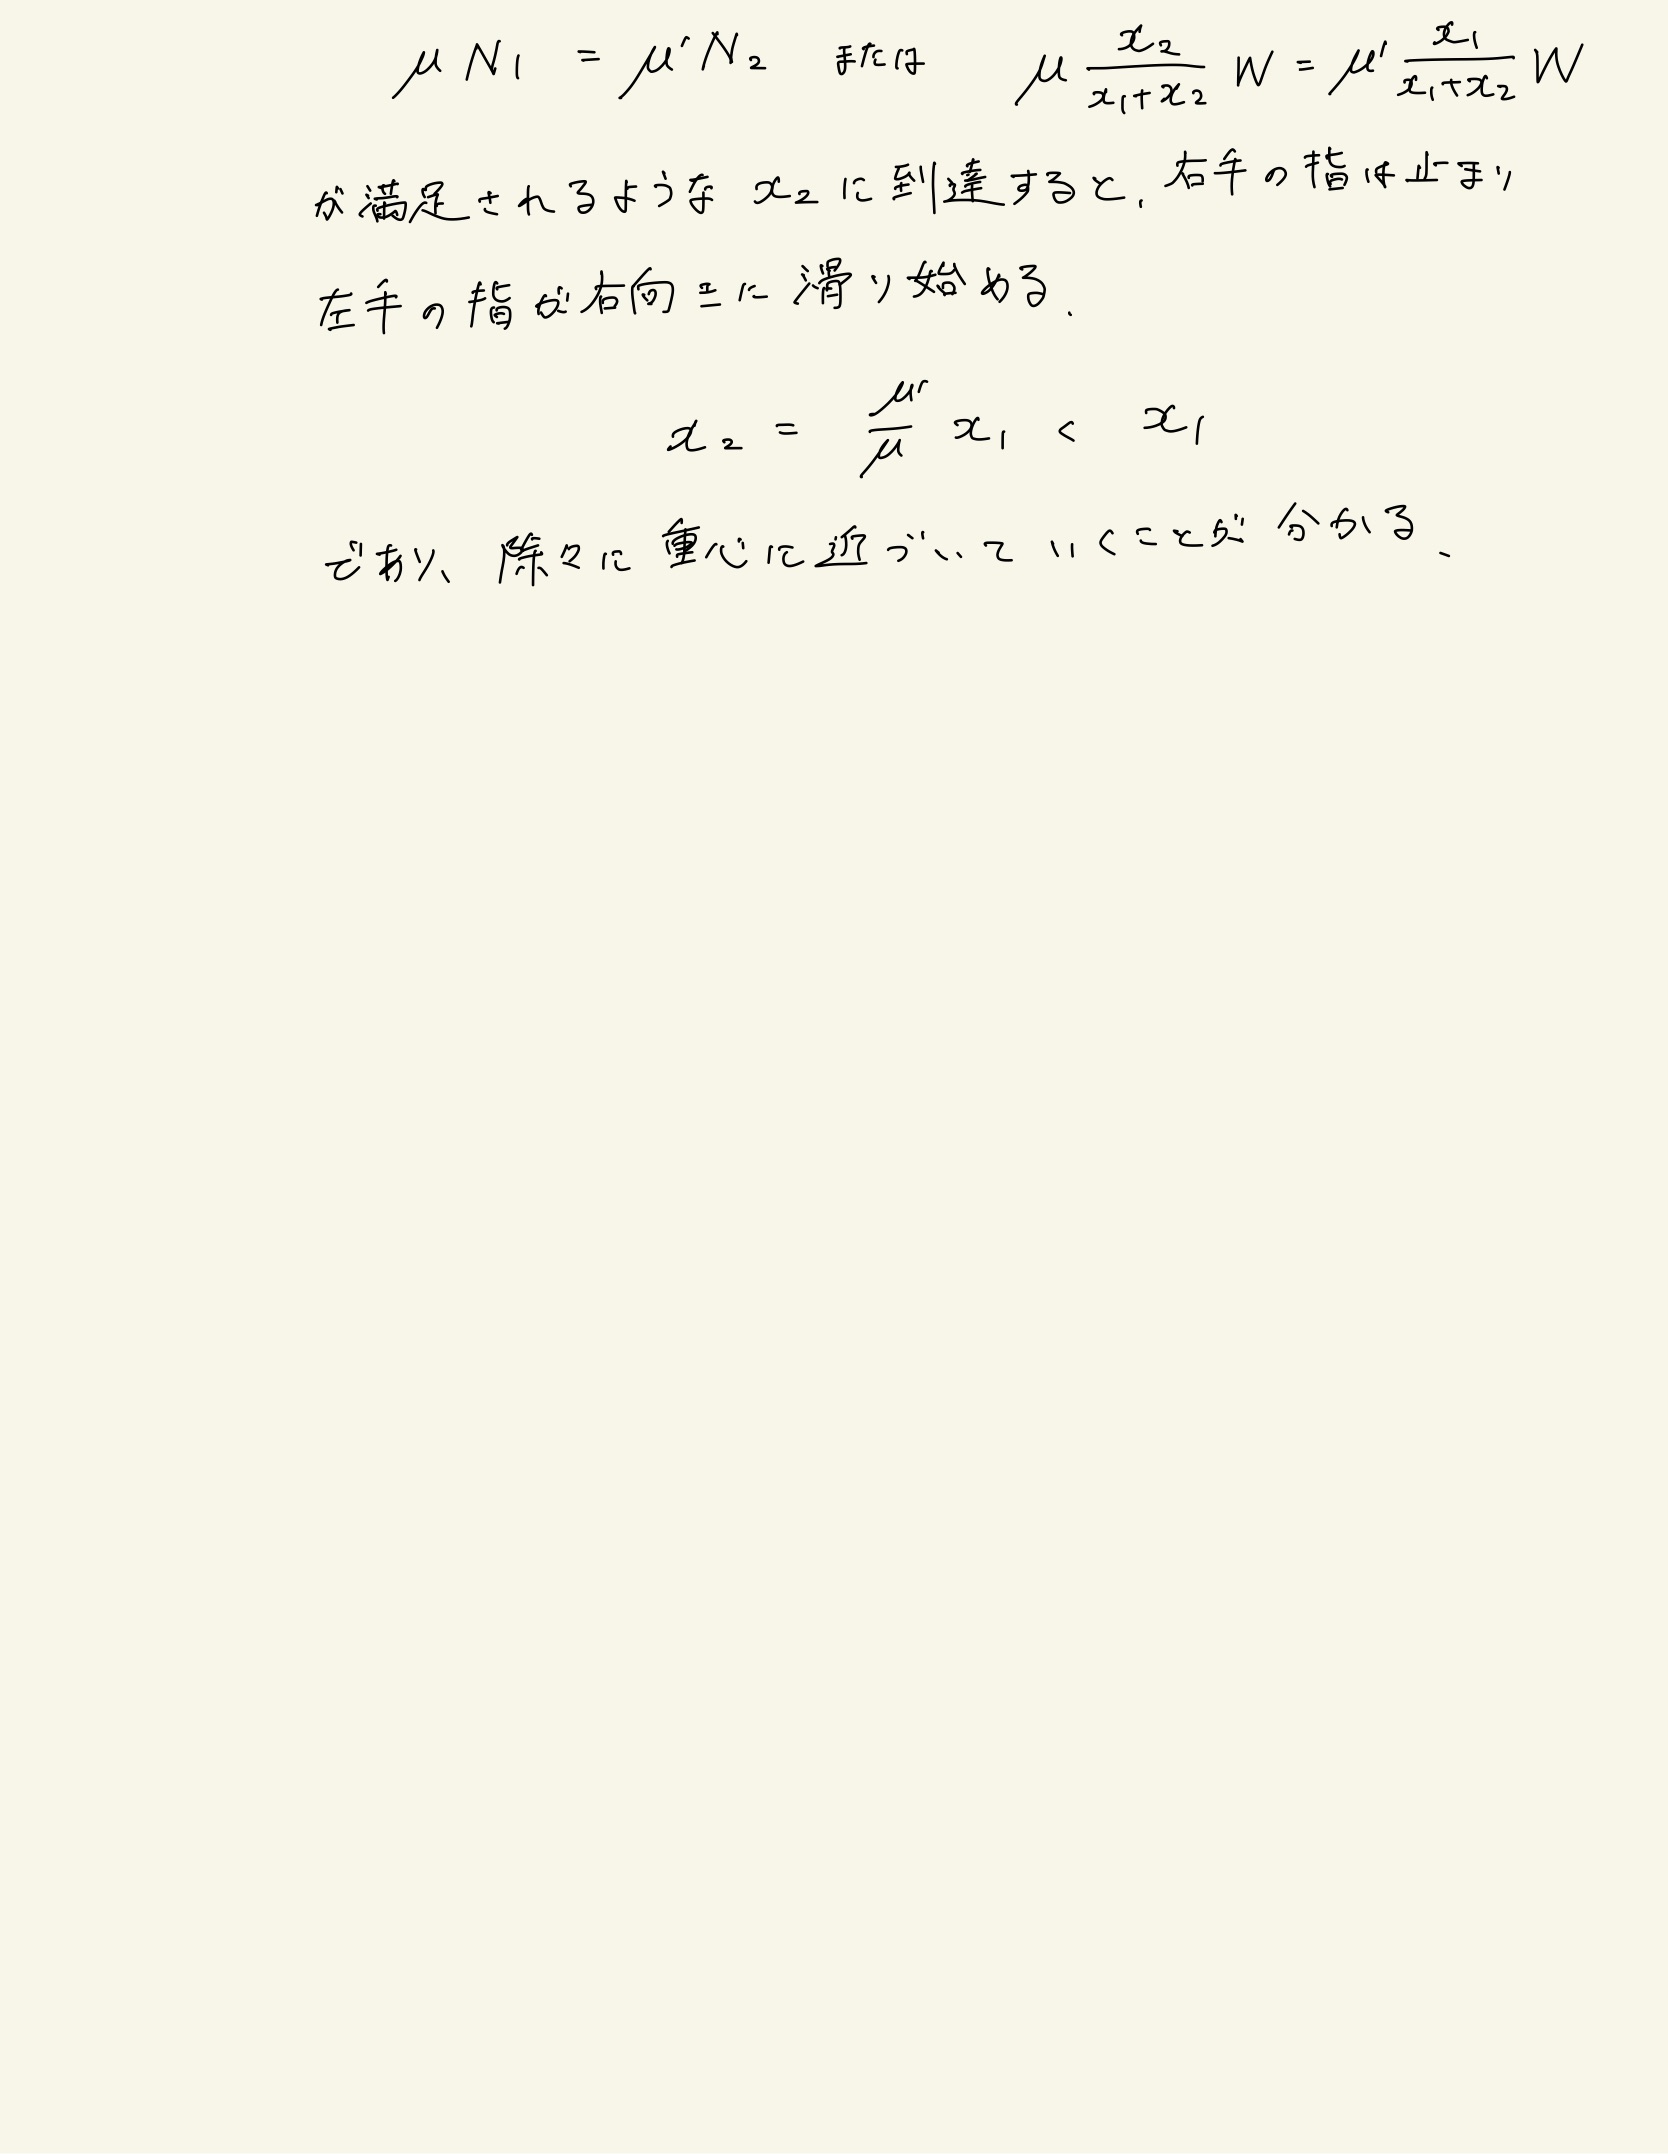 μN₁ = μ'N₂ または μ x₂/(x₁+x₂) W = μ' x₁/(x₁+x₂) W
が満足されるような x₂ に到達すると, 右手の指は止まり
左手の指が右向きに滑り始める.
x₂ = μ'/μ x₁ < x₁
であり、除々に重心に近づいていくことが分かる、